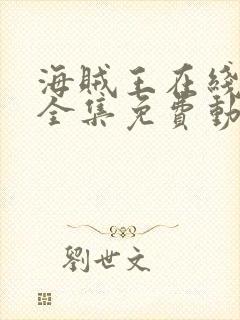 海贼王在綫
全集免費動
劉世文